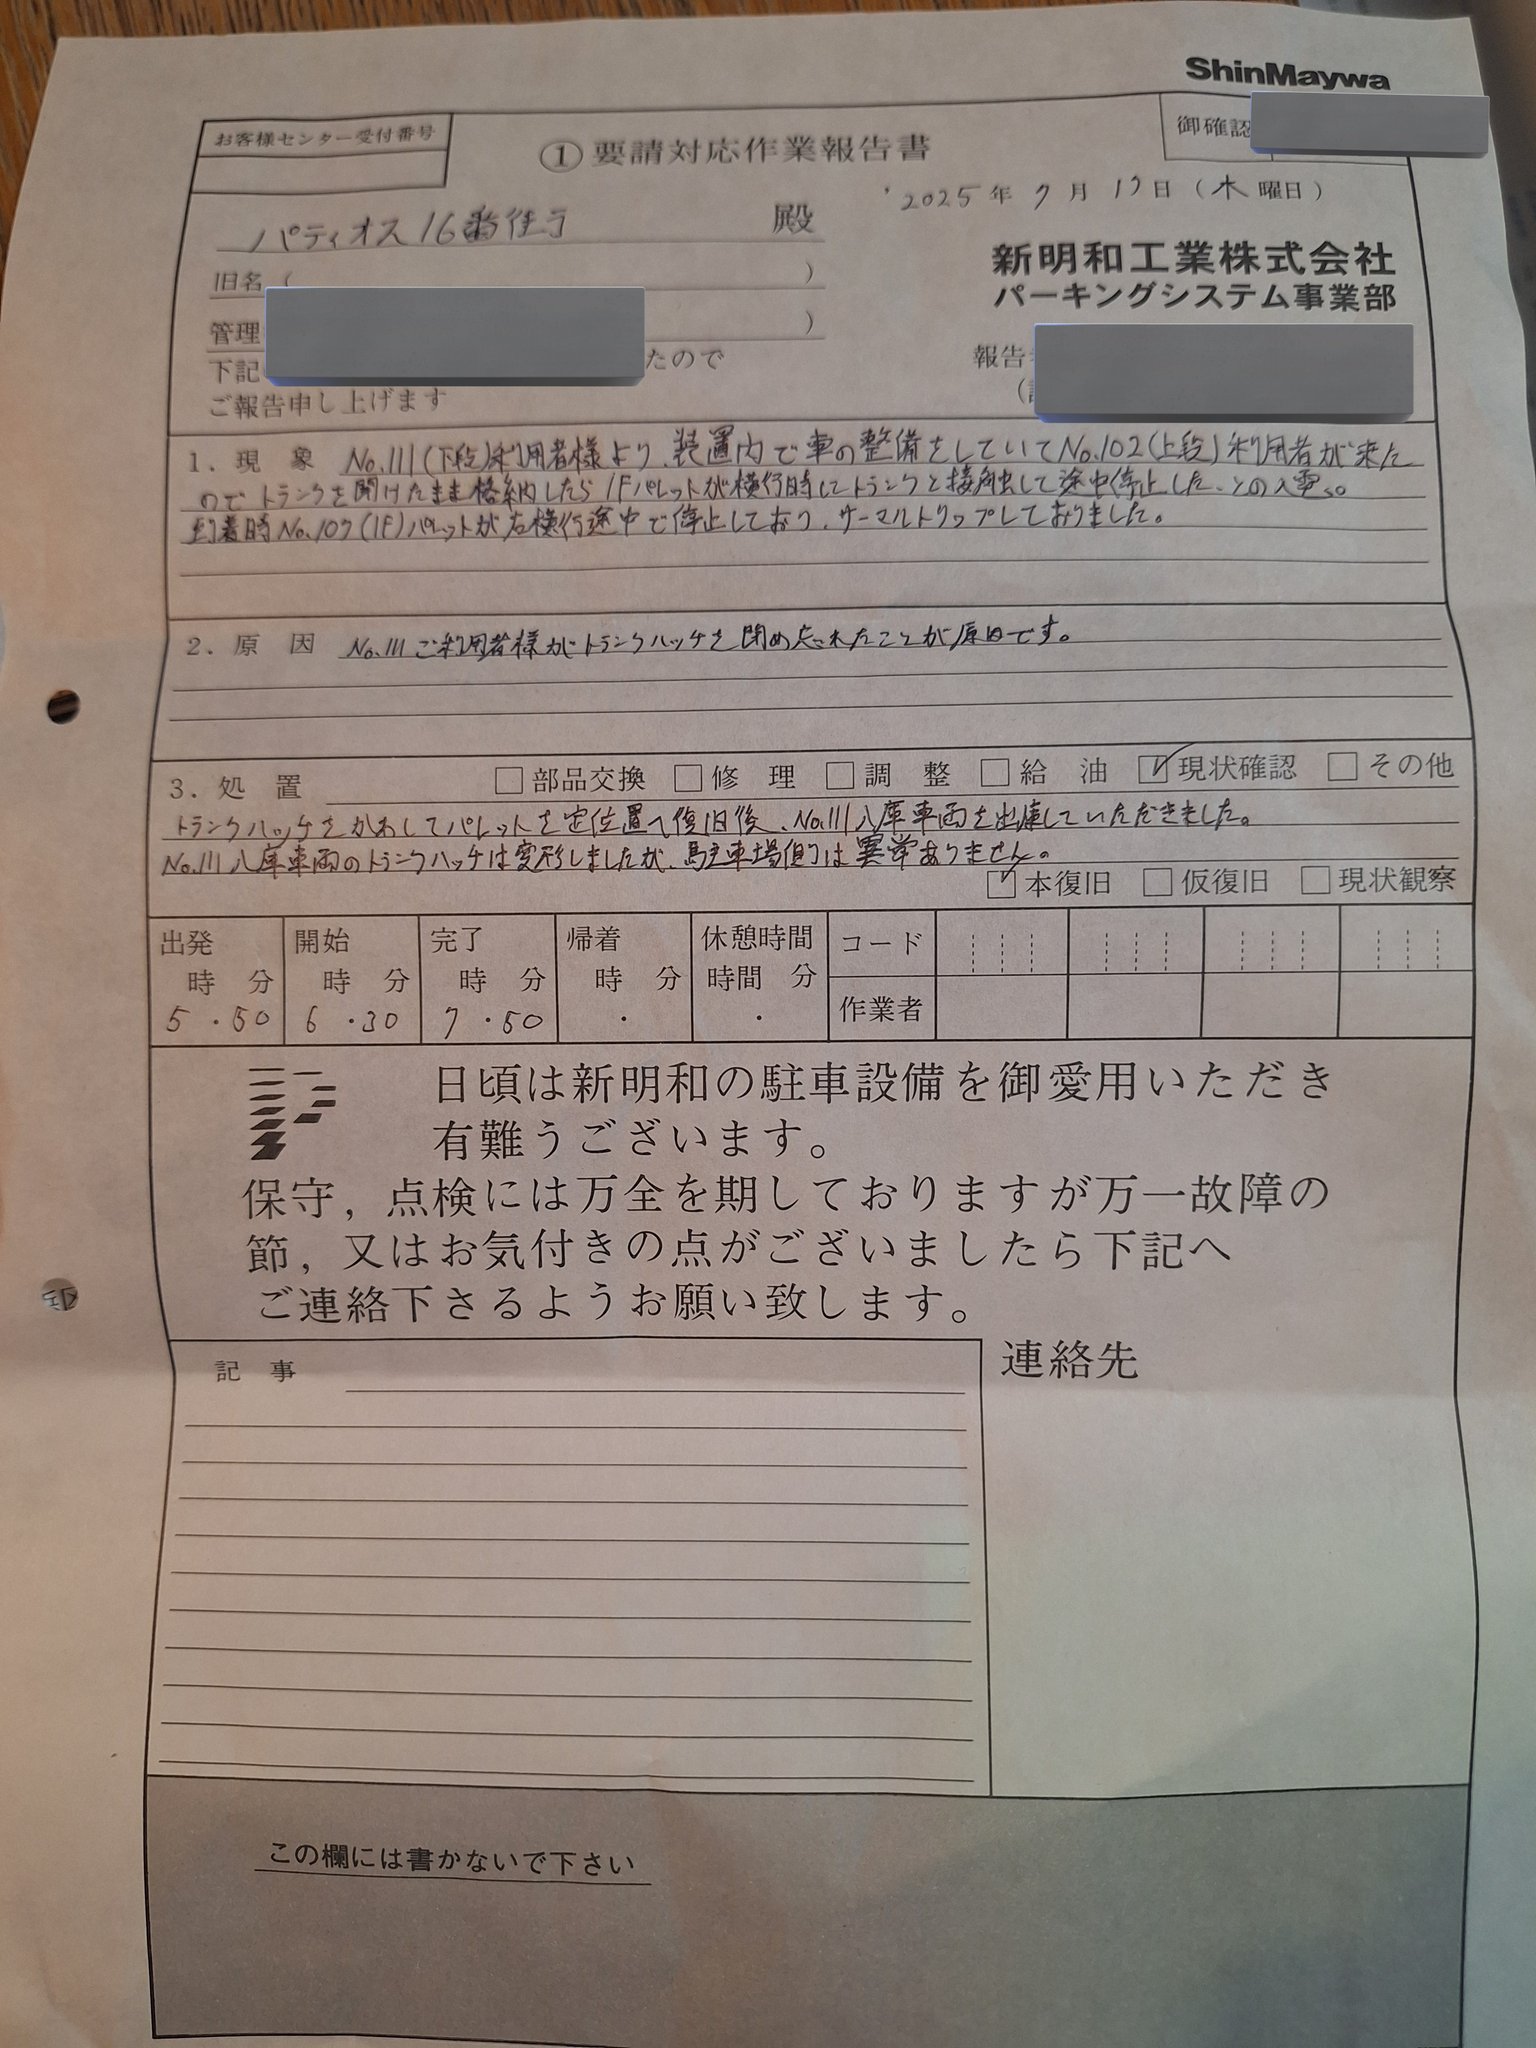 ShinMaywa
お客様センター受付番号
①要請対応作業報告書
御確認
2025年 7月 17日(木曜日)
パティオス16番街 殿
旧名( )
新明和工業株式会社
パーキングシステム事業部
管理 )
下記 たので
報告
ご報告申し上げます
1.現 象 No.111(下段)利用者様より、装置内で車の整備をしていてNo.102(上段)利用者が来た
のでトランクを開けたまま格納したら1Fパレットが横行時してトランクと接触して途中停止した、との入電。
到着時No.107(1F)パレットが右横行途中で停止しており、サーマルトリップしておりました。
2.原 因 No.111ご利用者様がトランクハッチを閉め忘れたことが原因です。
3.処 置 □部品交換 □修 理 □調 整 □給 油 ☑現状確認 □その他
トランクハッチをかわしてパレットを定位置へ復旧後、No.111入庫車両を出庫していただきました。
No.111入庫車両のトランクハッチは変形しましたが、駐車場側は異常ありません。
☑本復旧 □仮復旧 □現状観察
出発 開始 完了 帰着 休憩時間 コード
時 分 時 分 時 分 時 分 時間 分
5・50 6・30 7・50 ・ ・ 作業者
日頃は新明和の駐車設備を御愛用いただき
有難うございます。
保守,点検には万全を期しておりますが万一故障の
節,又はお気付きの点がございましたら下記へ
ご連絡下さるようお願い致します。
記 事
連絡先
この欄には書かないで下さい